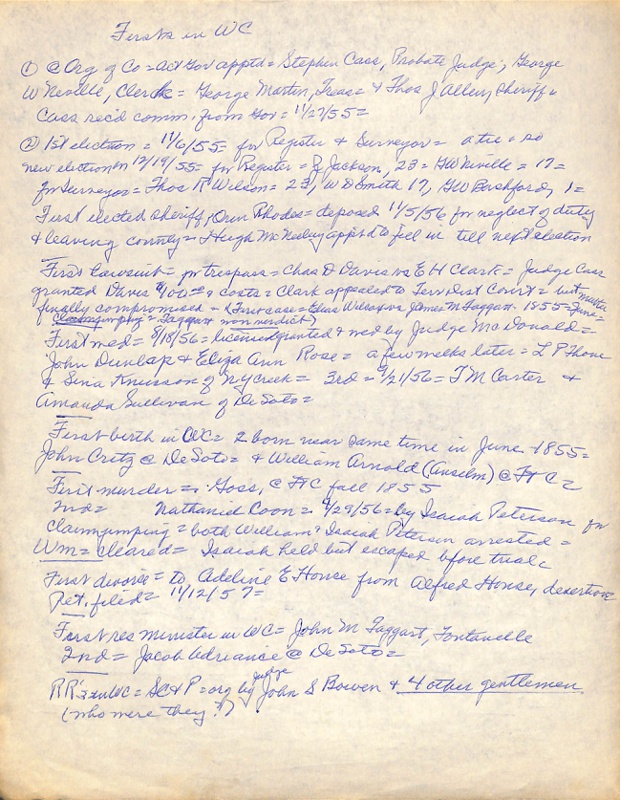 Firsts in WC
① @ Org of Co = act Gov apptd = Stephen Cass, Probate Judge; George
W Neville, Clerk = George Martin, Treas = & Thos J Allen, Sheriff =
Cass rec'd comm. from Gov = 11/27/55 =
② 1st election = 11/6/55 = for Register & Surveyor = a tie = so
new election on 12/19/55 = for Register = Jackson, 23 = GW Neville = 17 =
for Surveyor = Thos R Wilson = 23, W D Smith 17, GW Bashford, 1 =
First elected sheriff, Orrin Rhodes = deposed 11/5/56 for neglect of duty
& leaving county = Hugh McNeeley apptd to fill in till next election
First lawsuit = for trespass = Chas D Davis vs E H Clark = Judge Cass
granted Davis $100.00 & costs = Clark appealed to Terr Dist Court = but matter
finally compromised = (First case = Elias Wilcox vs James M Taggart. 1855 = June =
Claimjumping = Taggart won verdict)
First wed = 8/18/56 = license granted & wed by Judge McDonald =
John Dunlap & Eliza Ann Rose = a few weeks later = L P Thone
& Sena Knuson of NY Creek = 3rd = 9/21/56 = T M Carter &
Amanda Sullivan of De Soto =
First birth in WC = 2 born near same time in June 1855 =
John Critz @ DeSoto = & William Arnold (Anselm) @ Ft C =
First murder = Goss, @ Ft C fall 1855
2nd = Nathaniel Coon = 9/29/56 = by Isaiah Peterson for
claimjumping = both William & Isaiah Peterson arrested =
Wm = cleared = Isaiah held but escaped bfore trial =
First divorce = to Adeline E House from Alfred House, desertion
Pet. filed = 11/12/57 =
First res minister in WC = John M Taggart, Fontanelle
2nd = Jacob Adriance @ DeSoto =
RR's in WC = SC & P = org by Judge John S Bowen & 4 other gentlemen
(who were they?)